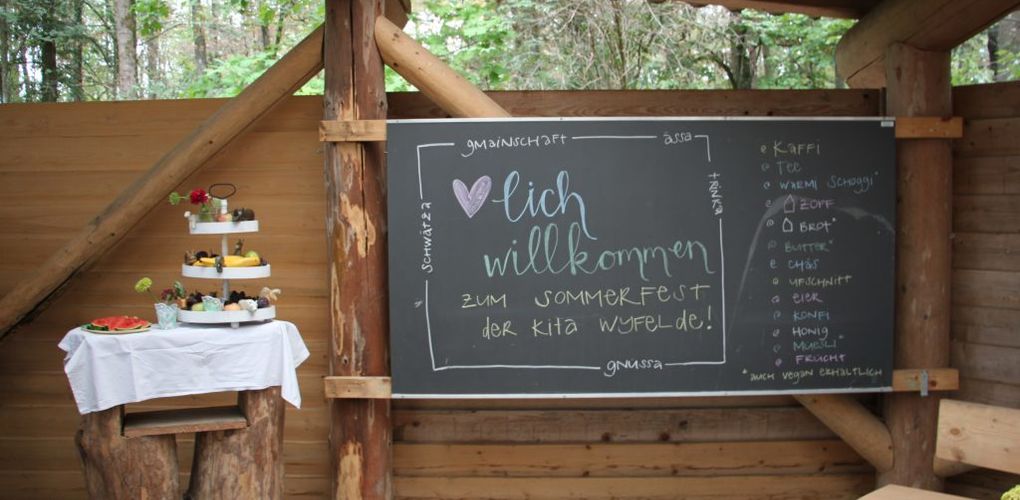 gmainschaft
ässa
schwätza
trinka
♥lich
willkommen
zum Sommerfest
der Kita Wyfelde!
gnüssa
Kaffi
Tee
warmi Schoggi*
Zopf
Brot*
Butter*
Chäs
Ufschnitt
Eier
Konfi
Honig
Müesli*
Frücht
*auch vegan erhältlich